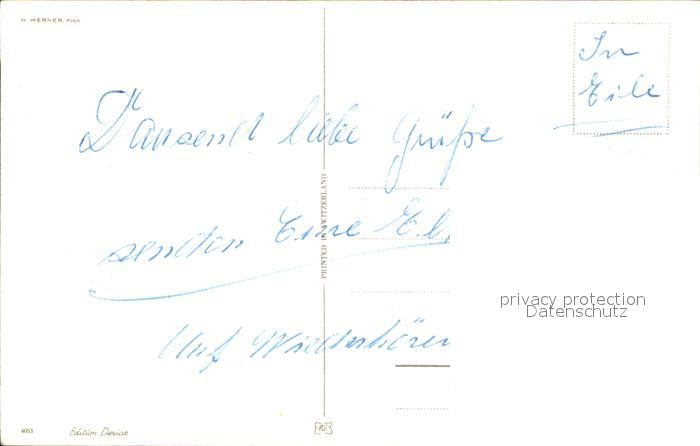 H. WERNER, PINX
In
Eile
Tausend liebe Grüße
senden Eure
Auf Wiederhören
PRINTED IN SWITZERLAND
privacy protection
Datenschutz
4053
Edition Deriaz